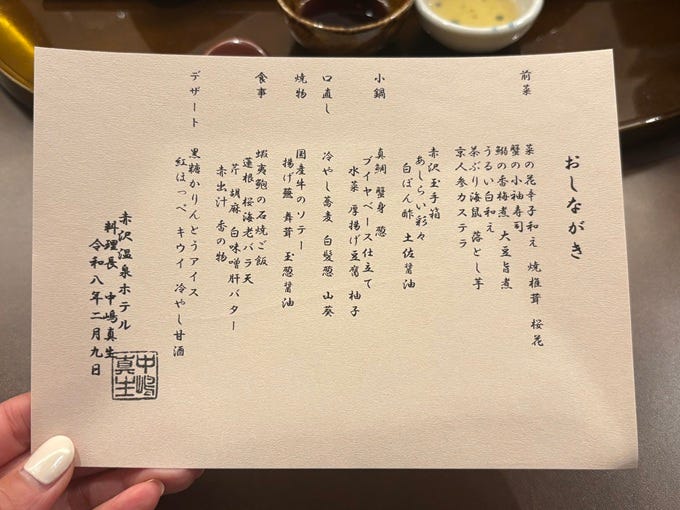 おしながき
前菜
菜の花辛子和え 焼椎茸 桜花
蟹の小袖寿司
鰯の香梅煮 大豆旨煮
うるい白和え
茶ぶり海鼠 落とし芋
京人参カステラ
赤沢玉手箱
あしらい彩々
白ぽん酢 土佐醤油
小鍋
真鯛 蟹身 葱
ブイヤベース仕立て
水菜 厚揚げ豆腐 柚子
口直し
冷やし蕎麦 白髪葱 山葵
焼物
国産牛のソテー
揚げ蕪 舞茸 玉葱醤油
食事
蝦夷鮑の石焼ご飯
蓮根 桜海老バラ天
芹 胡麻 白味噌肝バター
赤出汁 香の物
デザート
黒糖かりんとうアイス
紅ほっぺ キウイ 冷やし甘酒
赤沢温泉ホテル
料理長 中嶋真生
令和八年二月九日
中嶋
真生